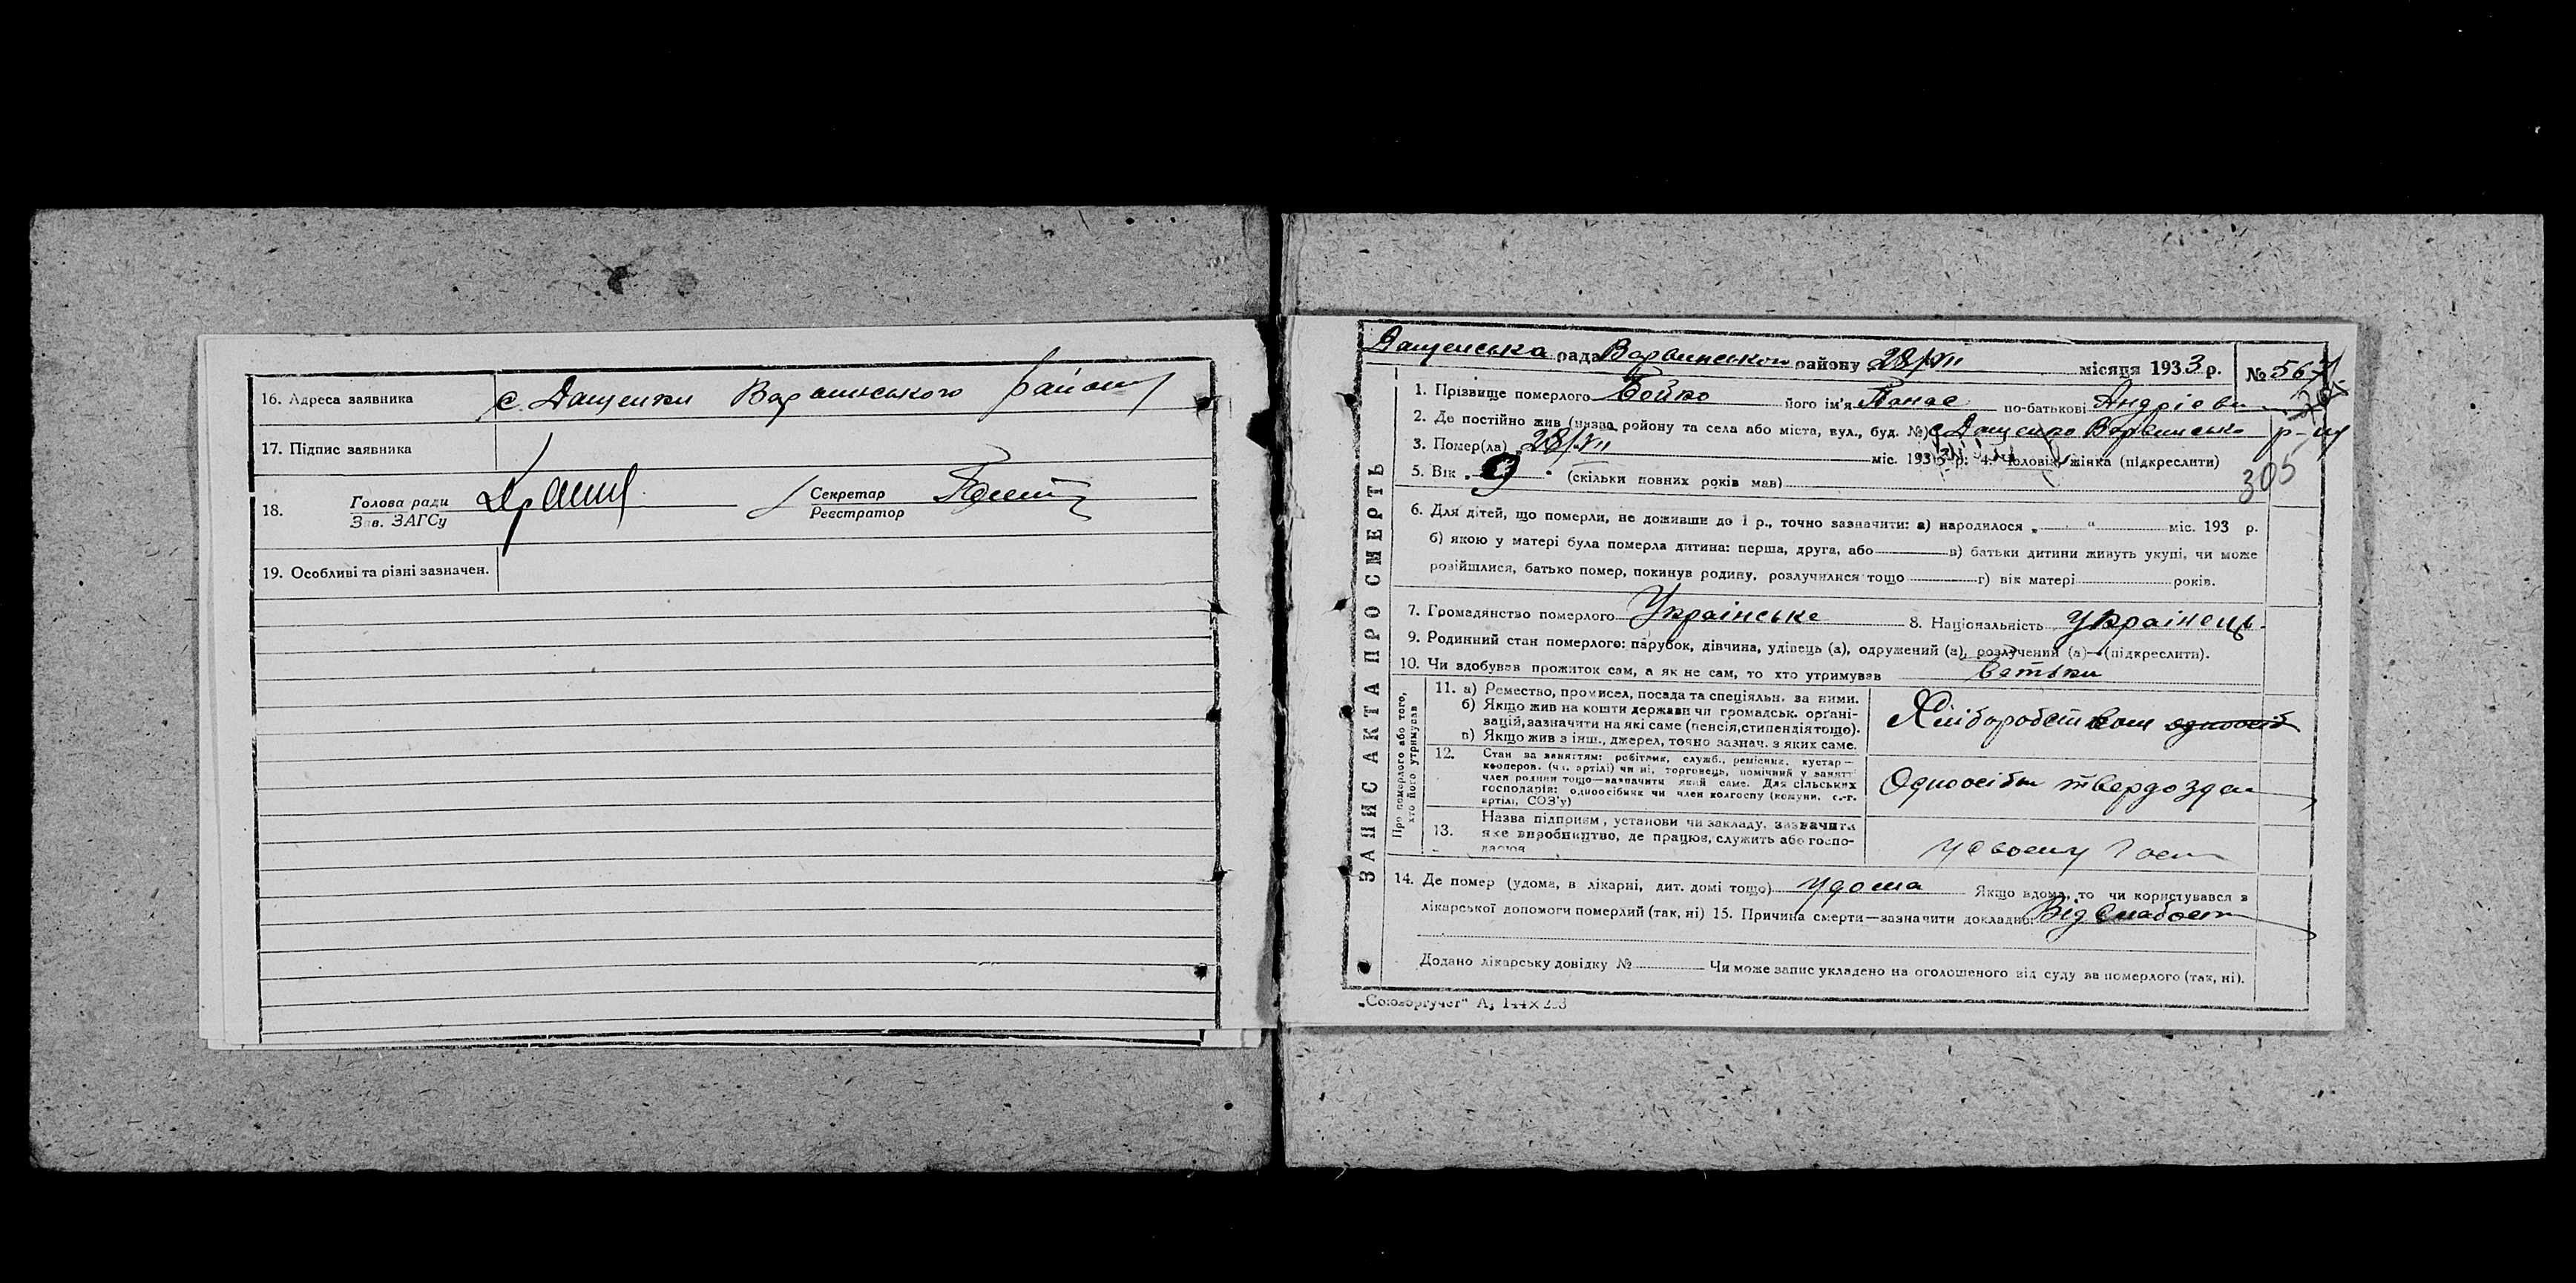 16. Адреса заявника с. Дащенки Варвинського району
17. Підпис заявника
18. Голова ради Зав. ЗАГСу Секретар Реєстратор
19. Особливі та різні зазначен.
ЗАПИС АКТА ПРО СМЕРТЬ
Дащенська рада Варвинського району 28/VII місяця 1933 р. № 567
1. Прізвище померлого Бойко його ім'я Панас по-батькові Андрієви
2. Де постійно жив (назва району та села або міста, вул., буд. №) с Дащенки Варвинсько р-ну
3. Помер(ла) 28/VII міс. 1933 р. 4. Чоловік, жінка (підкреслити)
5. Вік 9 (скільки повних років мав)
305
6. Для дітей, що померли, не доживши до 1 р., точно зазначити: а) народилося „ “ міс. 193 р.
б) якою у матері була померла дитина: перша, друга, або в) батьки дитини живуть укупі, чи може
розійшлися, батько помер, покинув родину, розлучилися тощо г) вік матері років.
7. Громадянство померлого Українське 8. Національність Українець
9. Родинний стан померлого: парубок, дівчина, удівець (а), одружений (а), розлучений (а) (підкреслити).
10. Чи здобував прожиток сам, а як не сам, то хто утримував батьки
Про померлого або того, хто його утримував
11. а) Ремество, промисел, посада та спеціяльн. за ними.
б) Якщо жив на кошти держави чи громадськ. органі-
зацій, зазначити на які саме (пенсія, стипендія тощо).
в) Якщо жив з інш., джерел, точно зазнач. з яких саме.
Хліборобством одноосіб
12. Стан за заняттям: робітник, служб., ремісник, кустар—
кооперов. (чл. артілі) чи ні, торговець, помічний у занятт
член родини тощо—зазначити який саме. Для сільських
господарів: одноосібник чи член колгоспу (комуни, с.-г.
артілі, СОЗ'у)
Одноосібн твердозда
13. Назва підприєм, установи чи закладу, зазначити
яке виробництво, де працює, служить або госпо-
дарює
у своєму госп
14. Де помер (удома, в лікарні, дит. домі тощо) удома Якщо вдома, то чи користувався з
лікарської допомоги померлий (так, ні) 15. Причина смерти—зазначити докладно Від слабост
Додано лікарську довідку № Чи може запис укладено на оголошеного від суду за померлого (так, ні).
„Союзоргучет“